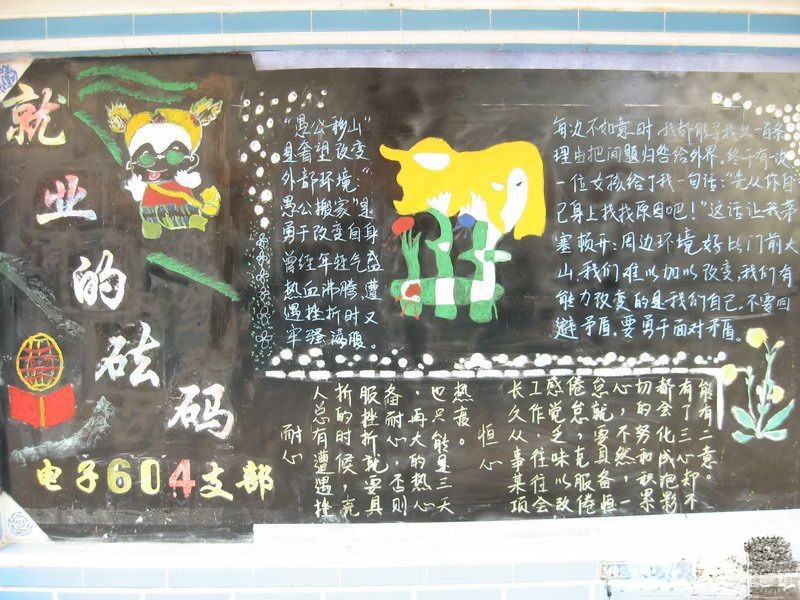 就业的砝码
电子604支部
"愚公移山"
是奢望改变
外部环境"
愚公搬家"是
勇于改变自身
曾经年轻气盛
热血沸腾,遭
遇挫折时又
牢骚满腹。
每次不如意时,我都能寻找出一百条
理由把问题归咎给外界。终于有一次
一位女孩给了我一句话:"先从你自
己身上找找原因吧!"这话让我茅
塞顿开:周边环境好比门前大
山,我们难以加以改变,我们有
能力改变的是我们自己.不要回
避矛盾,要勇于面对矛盾。
耐心
人总有遭遇挫
折的时候,克
服挫折就要具
备耐心,否则
,再大的热心
也只能是三天
热度。
恒心
长久从事某项
工作,往往会
感觉乏味以致
倦怠,克服倦
怠就要具备恒
心,不然,一
切的努和秋果
都会化成泡影
有了三心却不
能有二意。